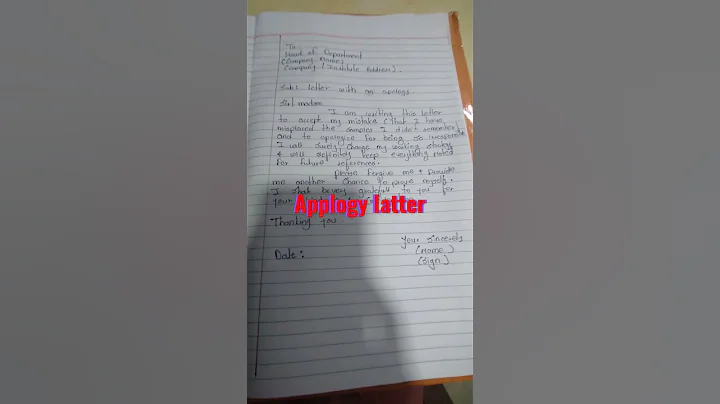 To
Head of Department
(Company Name)
Company / Institute Address).
Sub: letter with an apology.
Sir/ madam
I am writing this letter
to accept my mistake (that I have
misplaced the samples I didn't remember)
and to apologize for being so
I will surely change my working
& will definitely keep everything noted
for future references.
please forgive me & provide
me another chance to prove myself.
I shall be very grateful to you for
your
Applogy latter
Thanking you.
Your Sincerely
Date:
(Name)
(Sign)